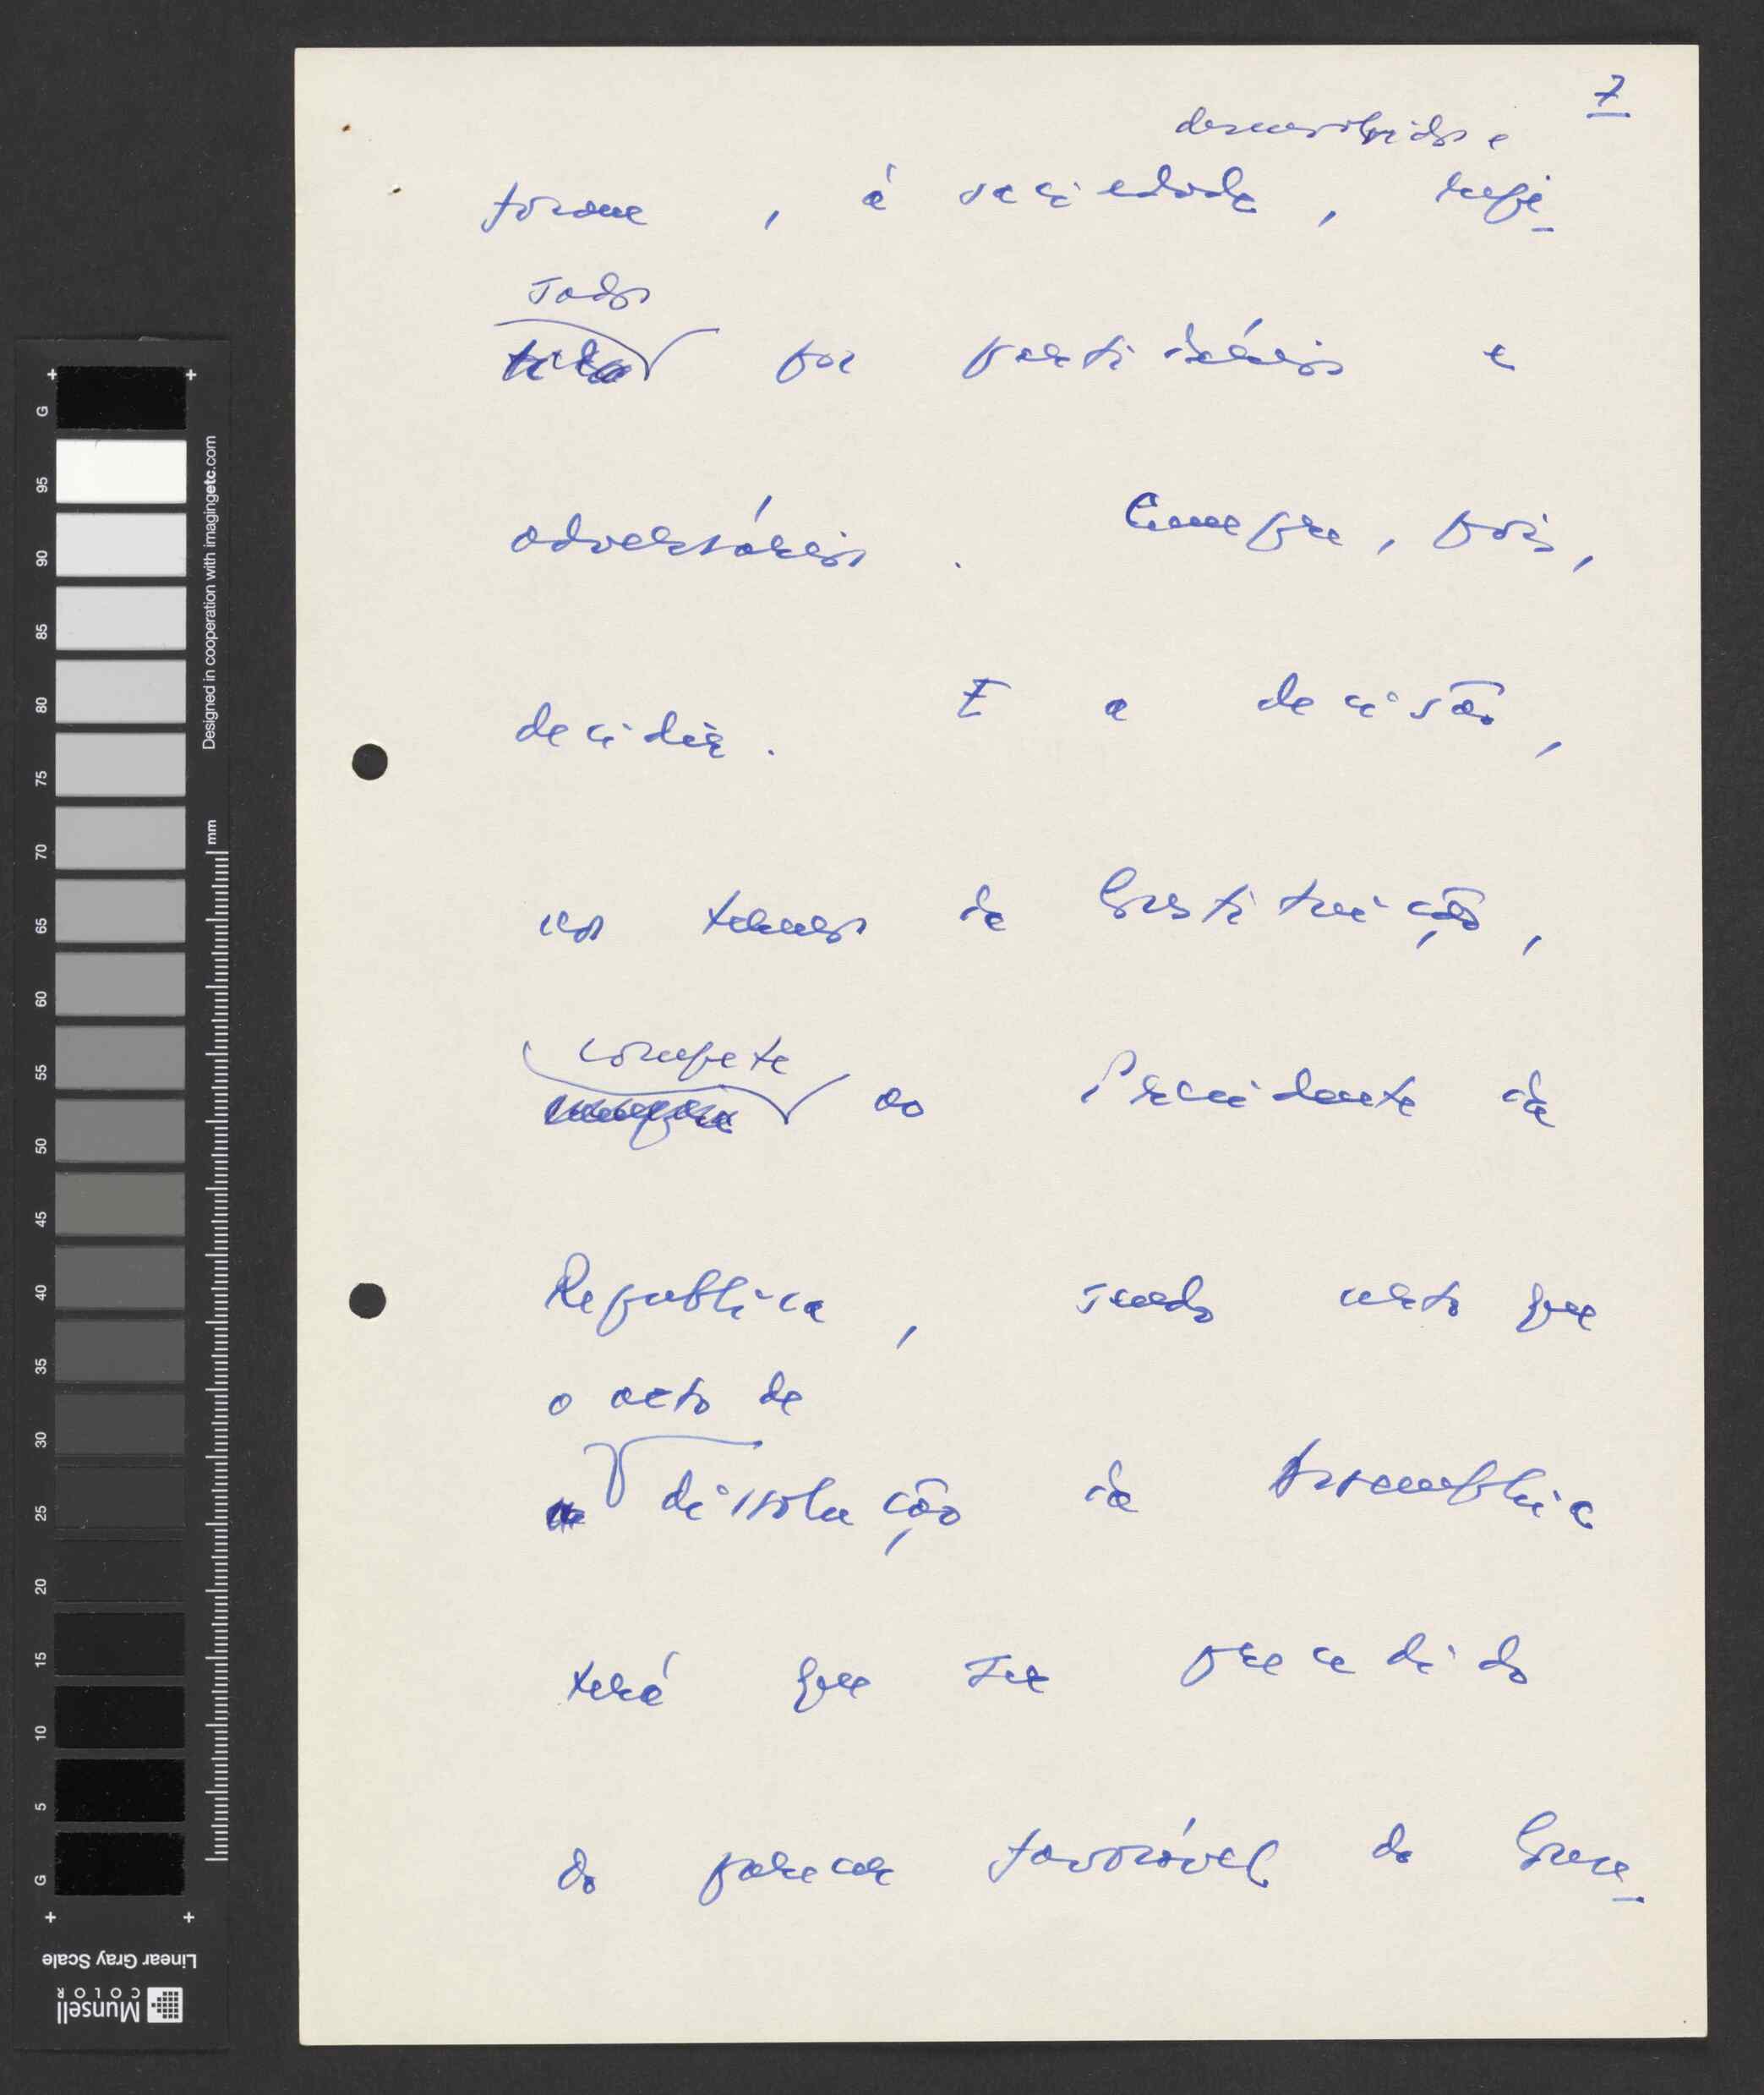 7
desenvolvidos e
forma, à saciedade, repi-
sados
por partidários e
adversários. Cumpre, pois,
decidir. E a decisão,
nos termos da Constituição,
compete
cumpre ao Presidente da
Republica, sendo certo que
o acto de
a dissolução da Assembleia
terá que ser precedido
do parecer favorável do Conse-
G 95 90 85 80 75 70 65 60 55 50 45 40 35 30 25 20 15 10 5 G
Designed in cooperation with imagingetc.com
mm
Linear Gray Scale
Munsell
COLOR